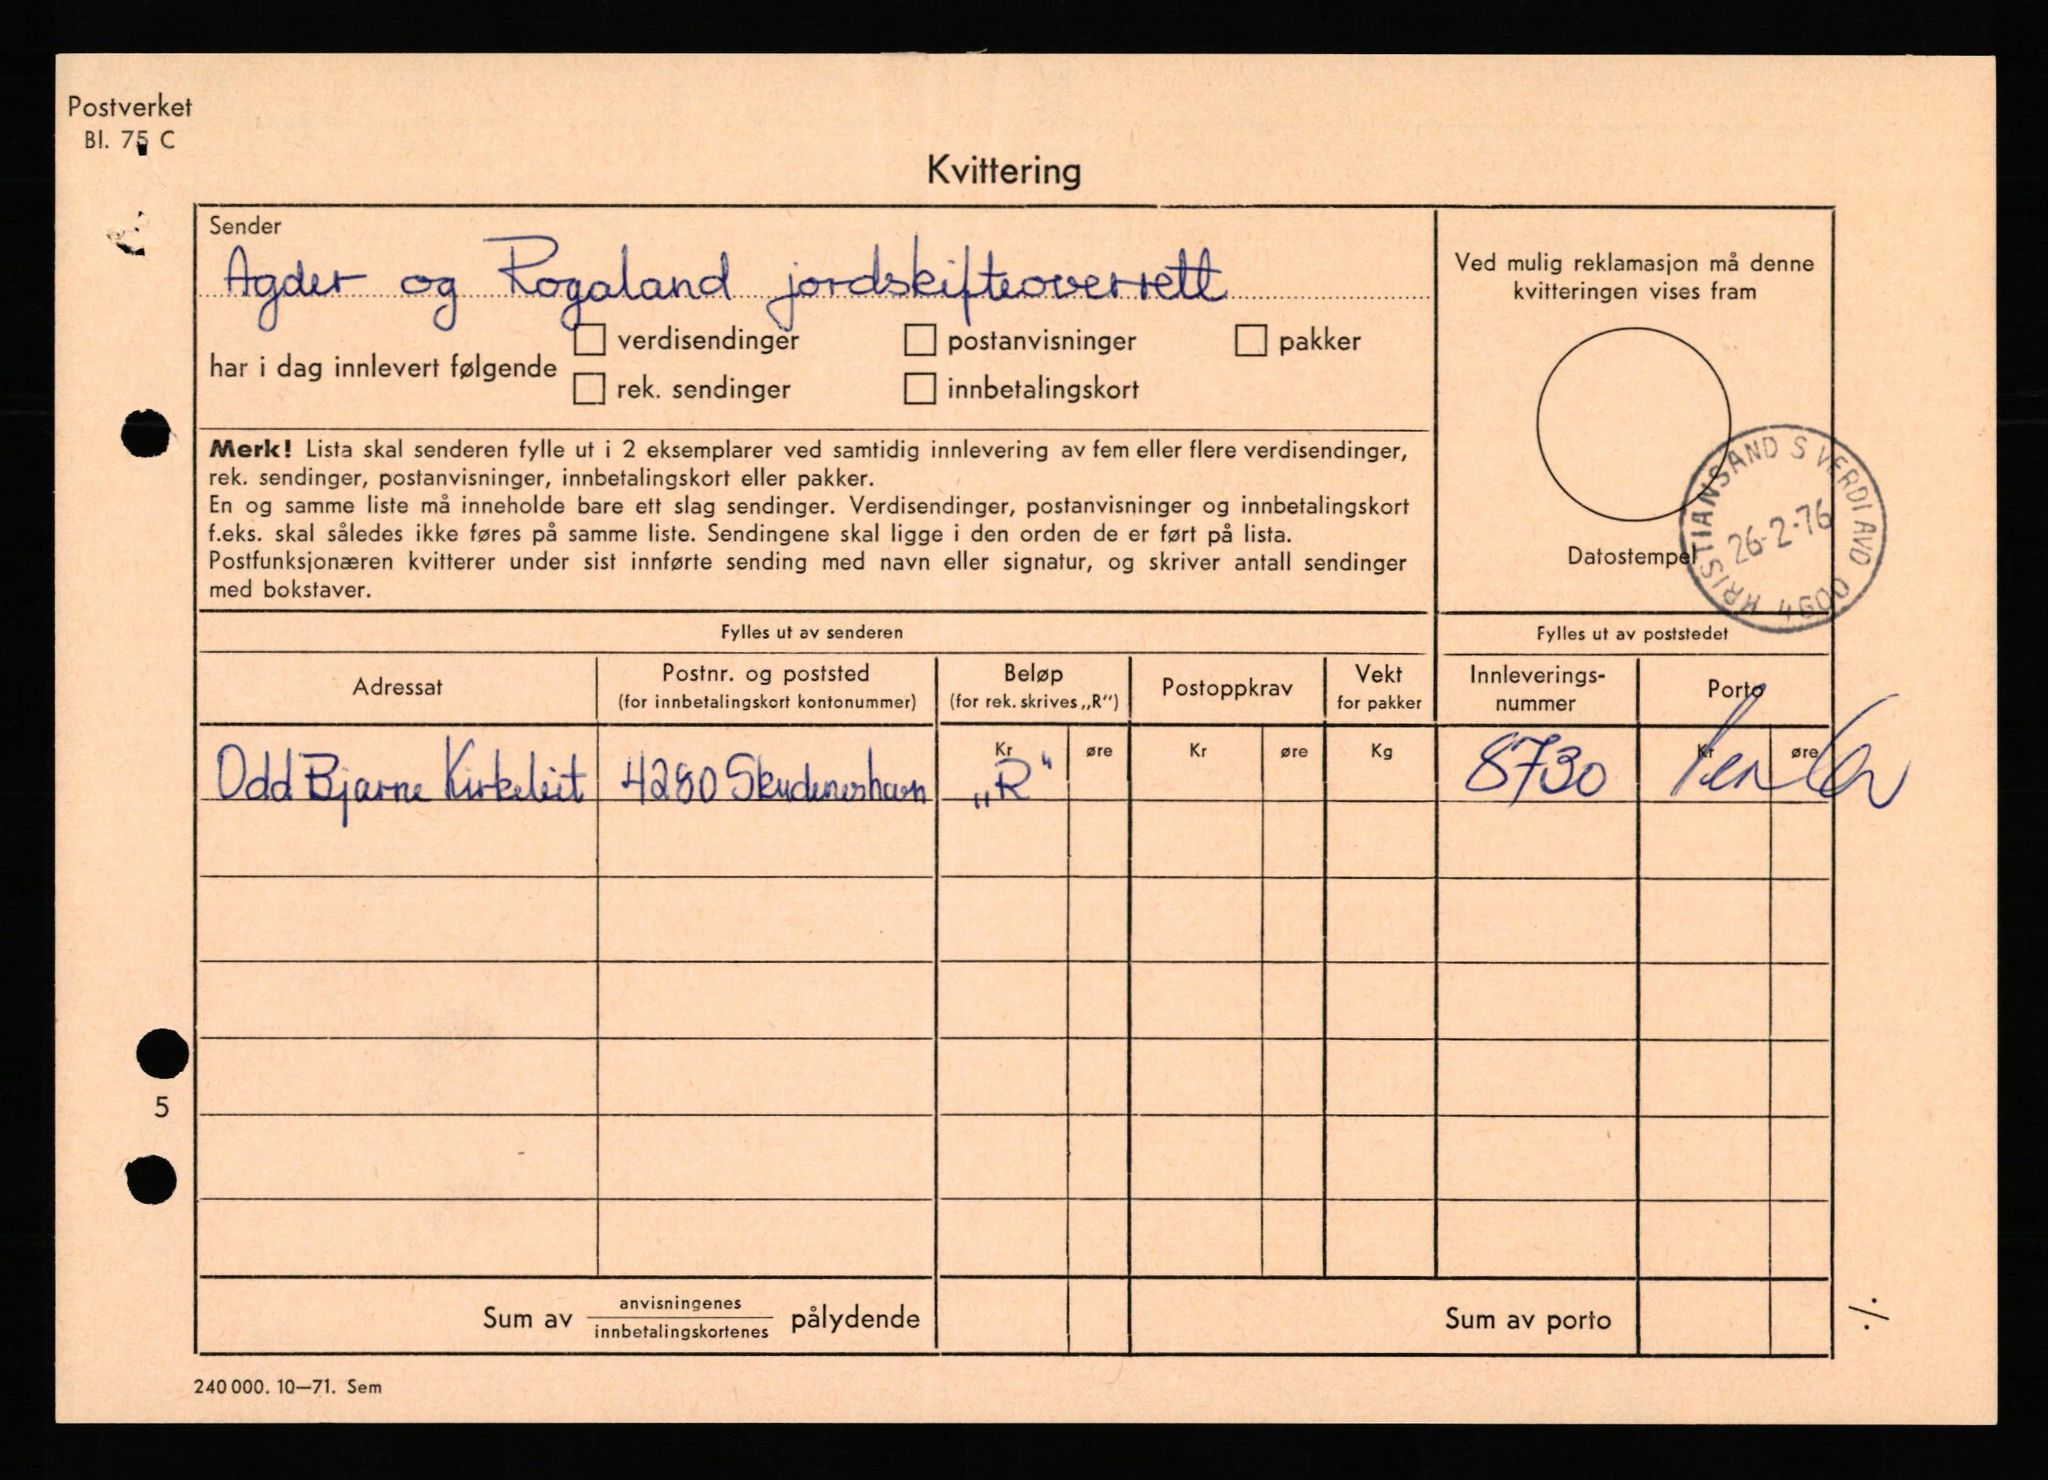 Postverket
Bl. 75 C
Kvittering
Sender
Agder og Rogaland jordskifteoverrett
har i dag innlevert følgende
verdisendinger
postanvisninger
pakker
rek. sendinger
innbetalingskort
Ved mulig reklamasjon må denne
kvitteringen vises fram
Datostempel
KRISTIANSAND S VERDI AVD 4600
26-2-76
Merk! Lista skal senderen fylle ut i 2 eksemplarer ved samtidig innlevering av fem eller flere verdisendinger,
rek. sendinger, postanvisninger, innbetalingskort eller pakker.
En og samme liste må inneholde bare ett slag sendinger. Verdisendinger, postanvisninger og innbetalingskort
f.eks. skal således ikke føres på samme liste. Sendingene skal ligge i den orden de er ført på lista.
Postfunksjonæren kvitterer under sist innførte sending med navn eller signatur, og skriver antall sendinger
med bokstaver.
Fylles ut av senderen
Fylles ut av poststedet
Adressat
Postnr. og poststed
(for innbetalingskort kontonummer)
Beløp
(for rek. skrives „R“)
Postoppkrav
Vekt
for pakker
Innleverings-
nummer
Porto
Kr øre Kr øre Kg Kr øre
Odd Bjarne Kirkeleit 4280 Skudeneshavn „R“ 8730
5
Sum av anvisningenes
innbetalingskortenes pålydende
Sum av porto
./.
240 000. 10—71. Sem